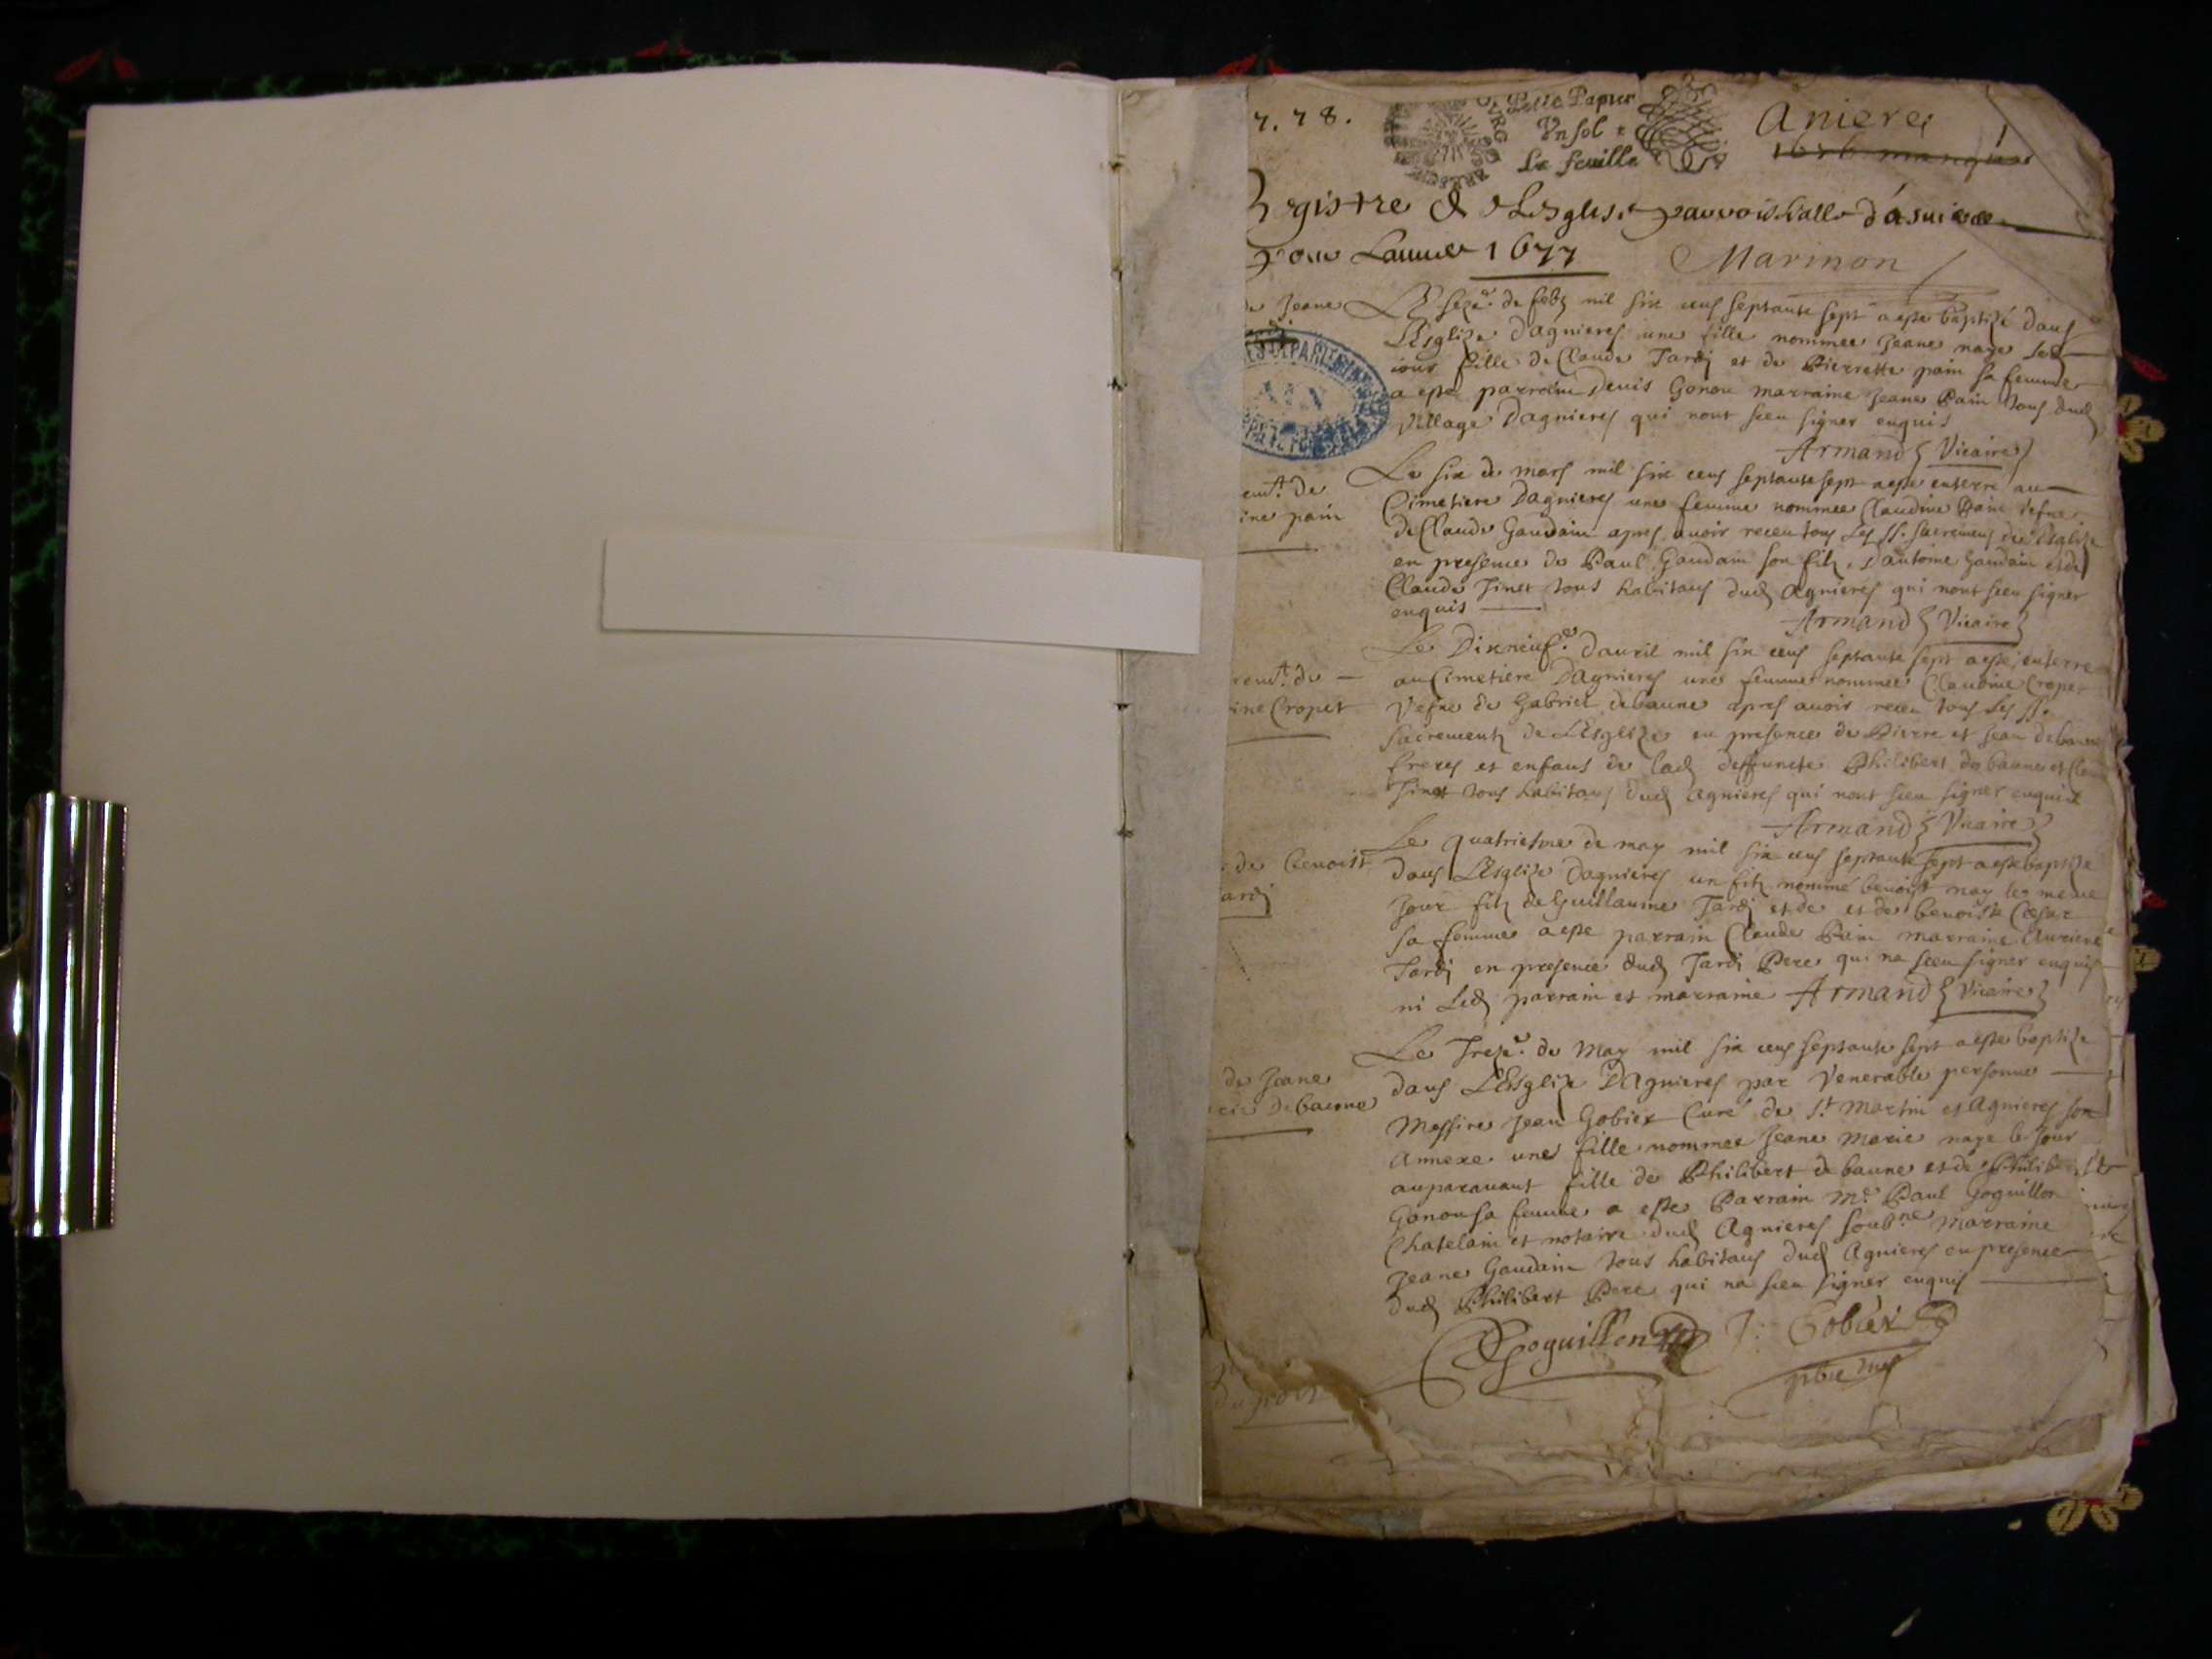 7. 78.
Petit Papier
Un sol
La feuille
Anieres
1
1676 manque
Registre de L'Esglise parroissialle d'asnieres
pour Lannee 1677
Marinon
de Jeane
Le seze.e de feb. mil six cens septante sept a este baptizé dans
L'Esglize Dagnieres une fille nommee Jeane naye led
jour fille de Claude Tardj et de Pierrette pain sa femme
a este parrain Denis Gonou marraine Jeane Pain tous dud
village Dagnieres qui nont sceu signer enquis
Armand Vicaire
ent.t de
ine pain
Le six de mars mil six cens septante sept a este enterre au
Cimetiere Dagnieres une femme nommee Claudine Pain vefve
de Claude Gaudain apres avoir receu tous Les SS. sacremens de L'Esglize
en presence de Paul Gaudain son filz, Dantoine Gaudain et de
Claude Tinet tous habitans dud Agnieres qui nont sceu signer
enquis
Armand Vicaire
rem.t de
ine Cropet
Le Dixneuf.e davril mil six cens septante sept a este enterre
au Cimetiere Dagnieres une femme nommee Claudine Cropet
vefve de Gabriel debaune apres avoir receu tous Les SS.
sacrements de L'Esglize en presence de Pierre et Jean debaune
freres et enfans de lad deffuncte Philibert de baune et
Tinet tous habitans dud Agnieres qui nont sceu signer enquis
Armand Vicaire
de Benoist
ardj
Le quatriesme de may mil six cens septante sept a este baptize
dans L'Esglize Dagnieres un filz nommé benoist nay le meme
Jour filz de Guillaume Tardj et de et de benoiste Cesar
sa femme a este parrain Claude Pain marraine
Tardj en presence dud Tardj Pere qui na sceu signer enquis
ni Led parrain et marraine Armand Vicaire
de Jeane
rie Debaune
Le Treze.e de May mil six cens septante sept a este baptize
dans L'Esglize Dagnieres par Venerable personne
Messire Jean Gobier Curé de S.t Martin et Agnieres son
Annexe une fille nommee Jeane Marie naye le jour
auparavant fille de Philibert de baune et de
Gonou sa femme a este Parrain M.e Paul Goguillon
Chatelain et notaire dud Agnieres soub.ne marraine
Jeane Gaudain tous habitans dud Agnieres en presence
dud Philibert Pere qui na sceu signer enquis
Goguillon
J: Gobier